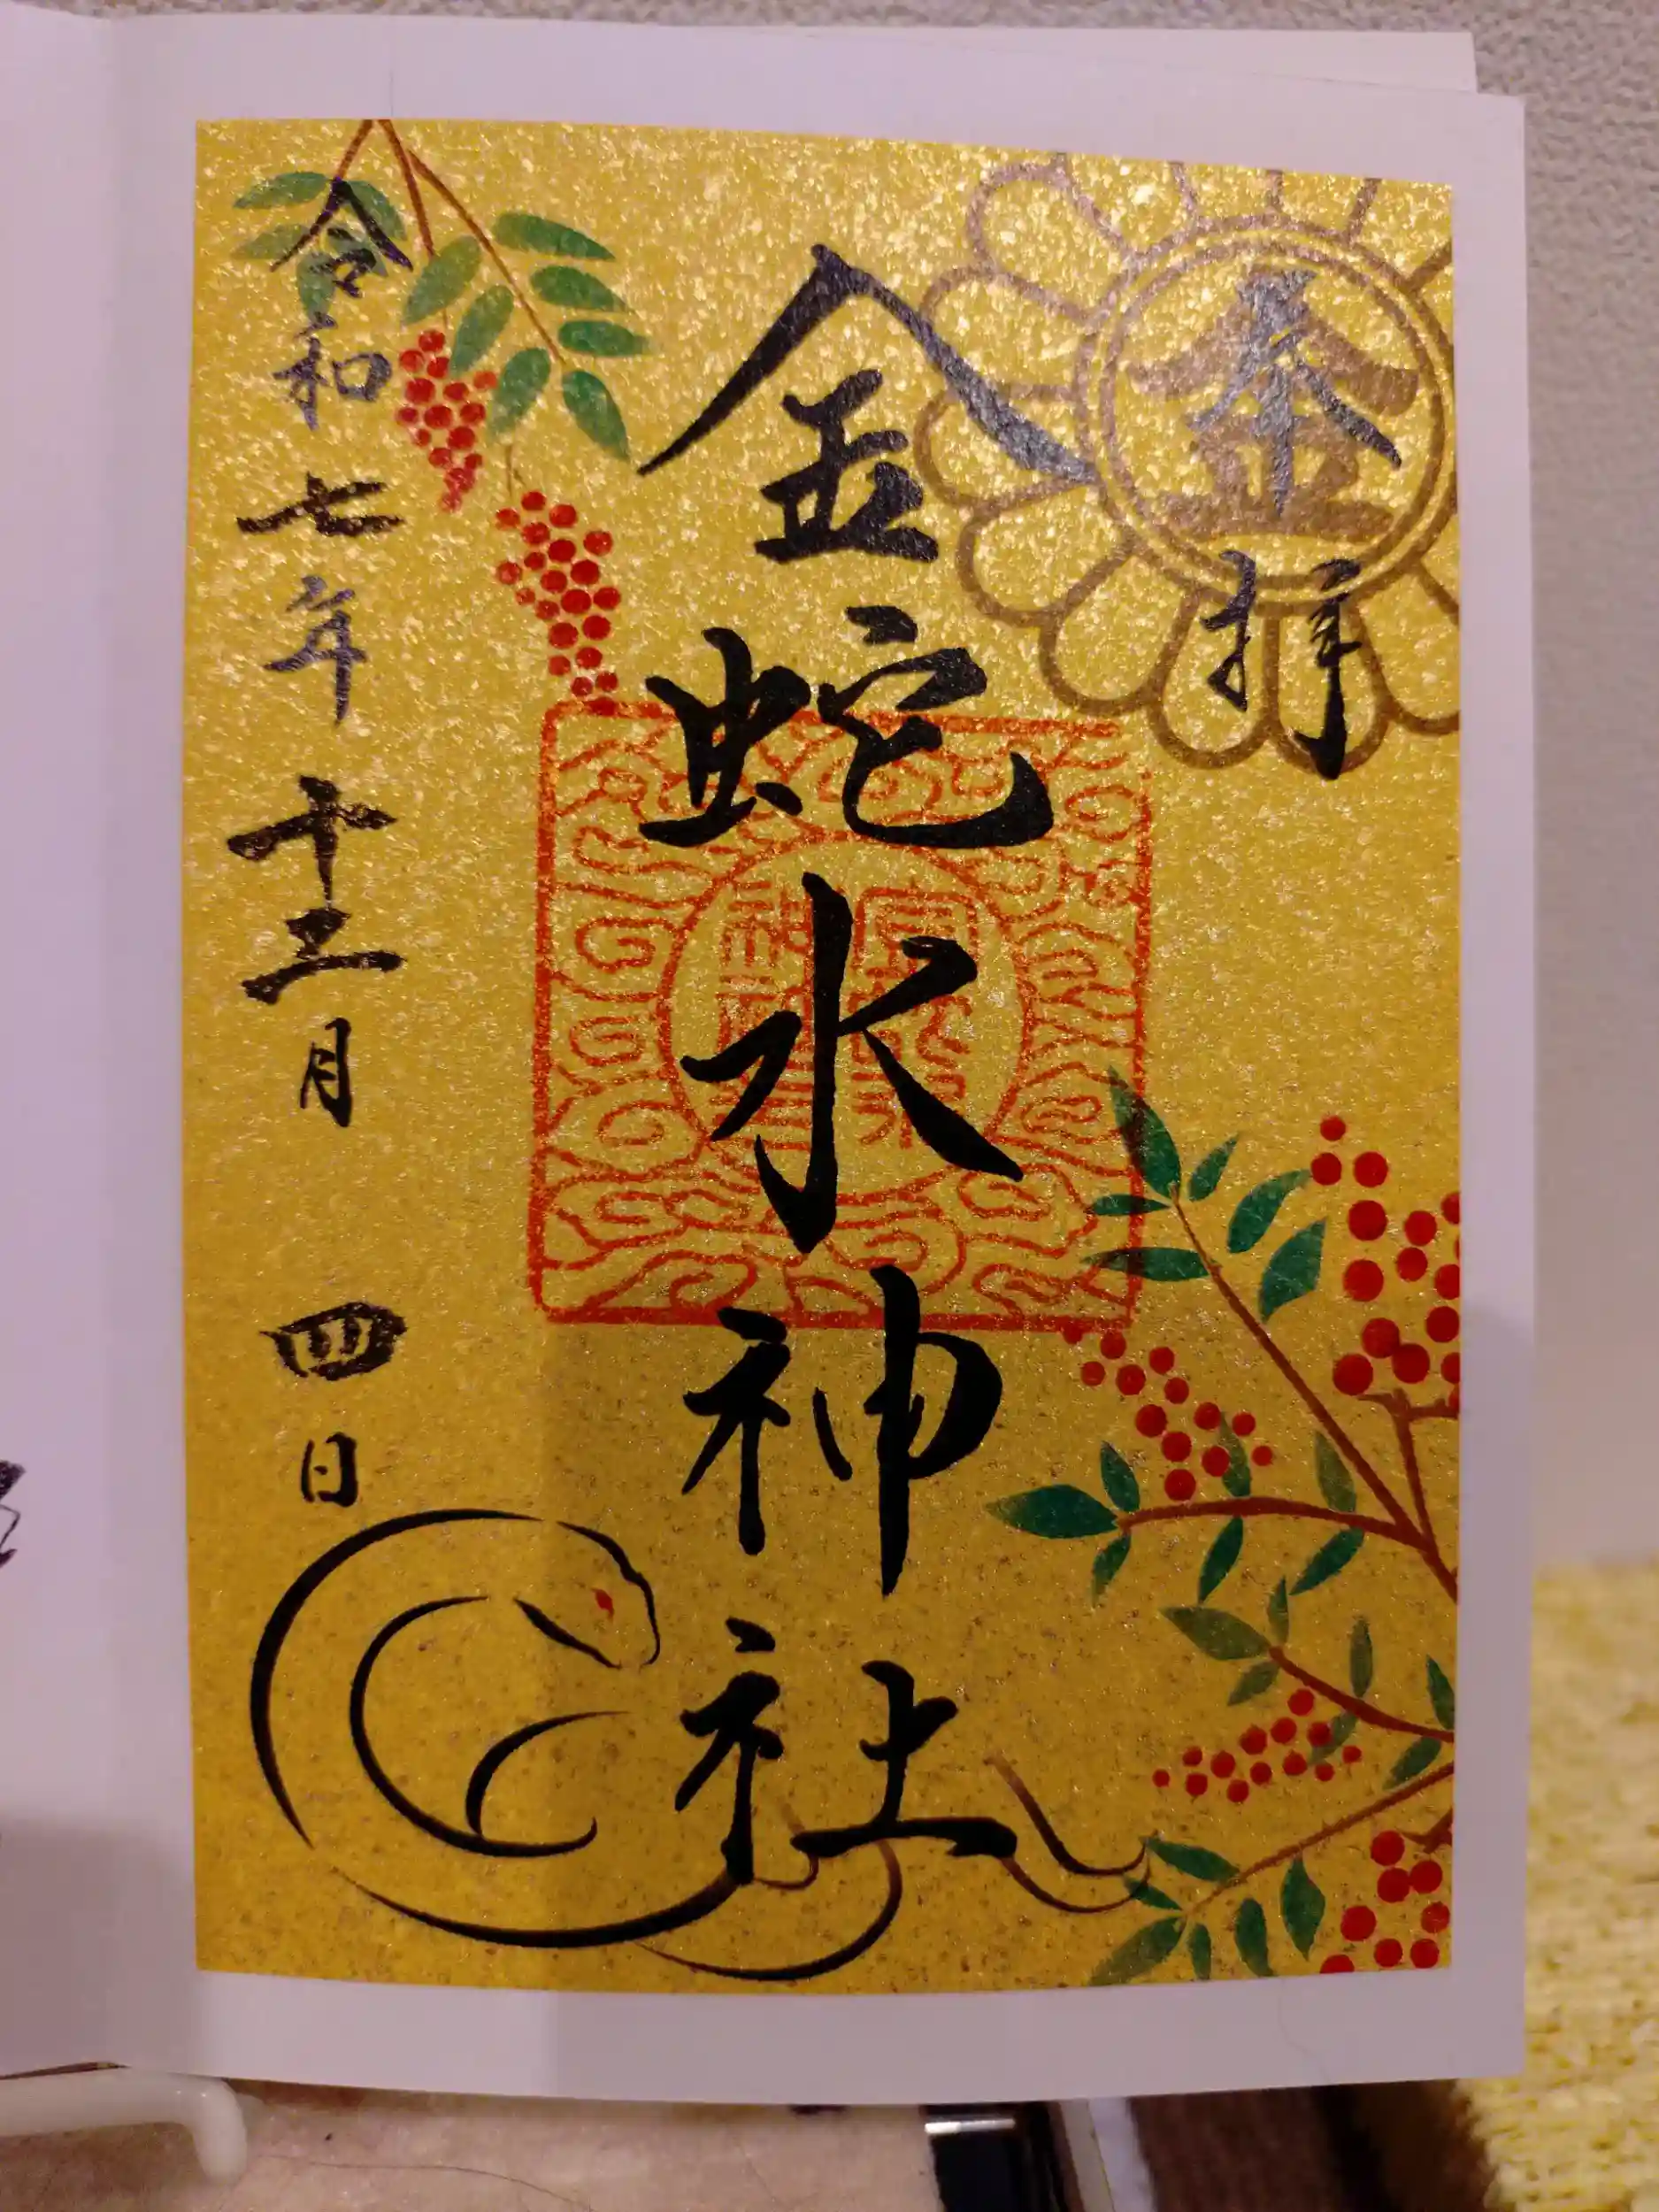 奉拝
金
金蛇水神社
令和七年十二月四日